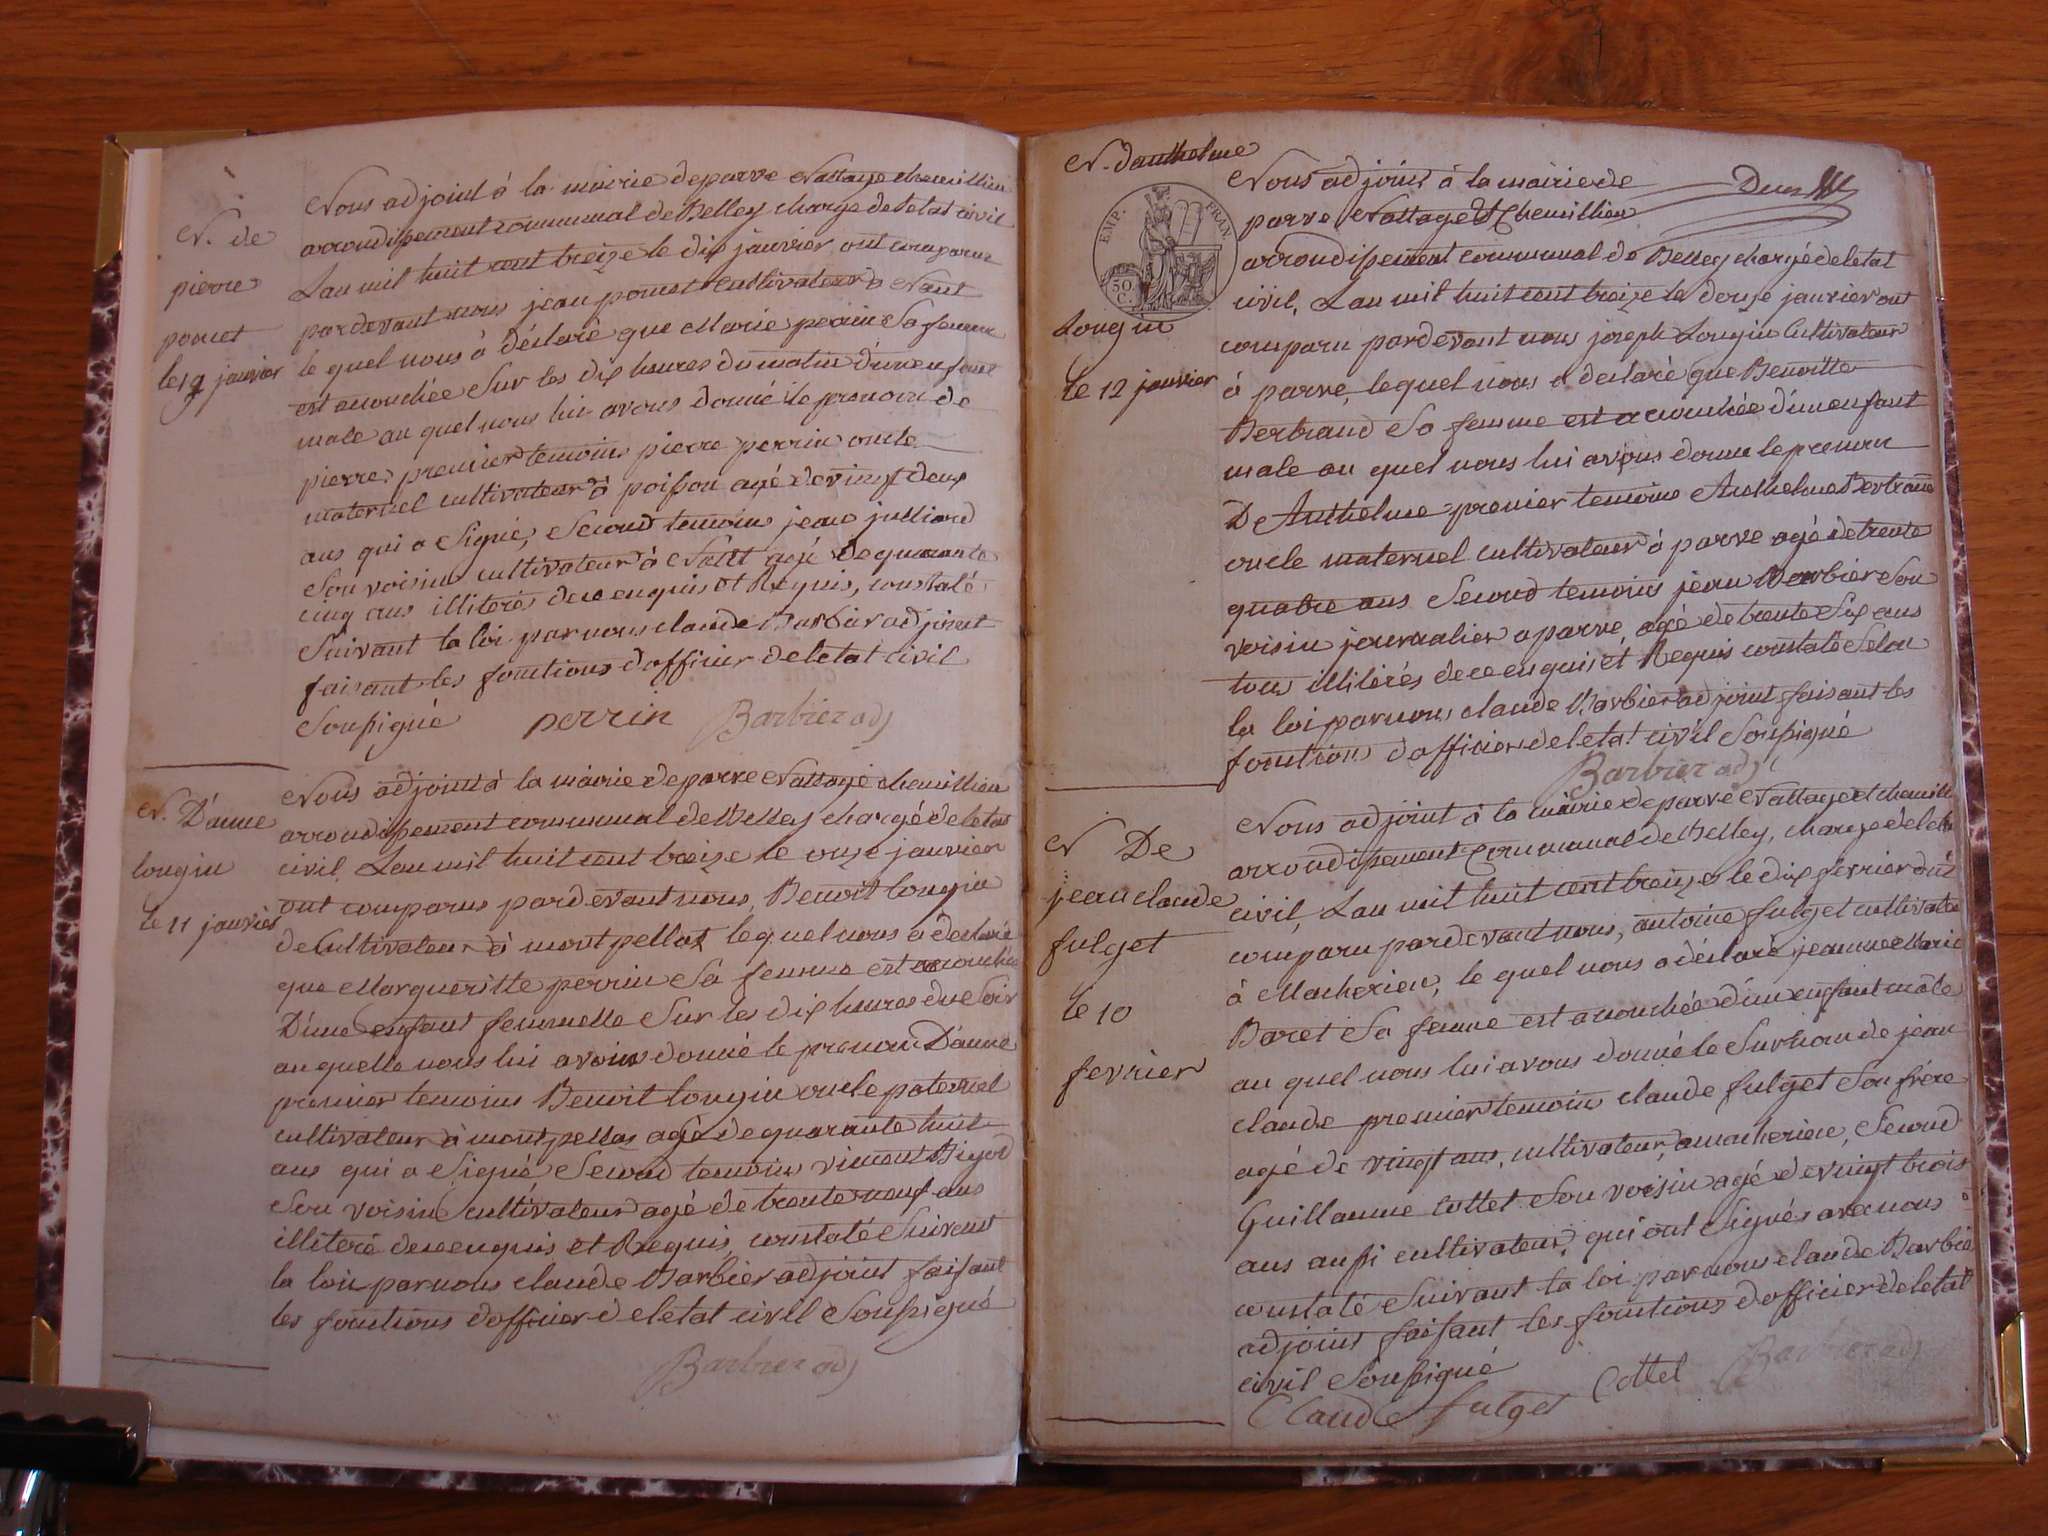 N. de
pierre
poncet
le 19 janvier
Nous adjoint à la mairie de parve Nattage chemillieu
arrondissement communal de Belley chargé de l'etat civil
Lan mil huit cent treize le dix janvier ont comparus
pardevant nous jean poncet cultivateur à
le quel nous à déclaré que Marie perrin Sa femme
est acouchée Sur les dix heures du matin d'un enfant
male au quel nous lui avons donné le prenom de
pierre, premier temoins pierre perrin oncle
maternel cultivateur à poisson agé de vingt deux
ans qui a Signé, Second temoins jean julliand
Son voisin cultivateur à agé de quarante
cinq ans illiterés de ce enquis et Requis, constaté
Suivant la loi par nous claude Barbier adjoint
faisant les fonctions dofficier de letat civil
Soussigné perrin Barbier adj
N. D'anne
longin
le 11 janvier
Nous adjoint à la mairie de parve Nattage chemillieu
arrondissement communal de Belley chargé de letat
civil Lan mil huit cent treize le onze janvier
ont comparus pardevant nous, Benoit longin
de Cultivateur à montpellas lequel nous a declaré
que Margueritte perrin Sa femme est acouchée
D'une enfant femmelle Sur les dix heures du Soir
au quelle nous lui avons donné le prenom D'anne
premier temoins Benoit longin oncle paternel
cultivateur à montpellas agé de quarante huit
ans qui a Signé, Second temoins vincent
Son voisin cultivateur agé de trente neuf ans
illiteré de ce enquis et Requis, constaté Suivant
la loi par nous claude Barbier adjoint faisant
les fonctions dofficier de letat civil Soussigné
Barbier adj
N. danthelme
longin
le 12 janvier
EMP. FRAN.
50 C.
Nous adjoint à la mairie de
parve Nattage et Chemillieu
arrondissement communal de Belley chargé de letat
civil, Lan mil huit cent treize le douze janvier ont
comparu pardevant nous joseph Longin Cultivateur
à parve, lequel nous a declaré que Benoitte
Bertrand Sa femme est acouchée d'un enfant
male au quel nous lui avons donné le prenom
D Anthelme premier temoins Anthelme Bertrand
oncle maternel cultivateur à parve agé de trente
quatre ans Second temoins jean Barbier Son
voisin journalier a parve, agé de trente Six ans
tous illiterés de ce enquis et Requis constaté Selon
la loi par nous claude Barbier adjoint faisant les
fonctions dofficier de letat civil Soussigné
Barbier adj
N De
jean claude
fulget
le 10
fevrier
Nous adjoint à la mairie de parve Nattage et chemill
arrondissement Communal de Belley, chargé de let
civil, Lan mil huit cent treize le dix fevrier ont
comparu pardevant nous, antoine fulget cultivate
à Macherieu, le quel nous a declaré jeanne Marie
Baret Sa femme est acouchée d'un enfant mâle
au quel nous lui avons donné le Surnom de jean
claude premier temoins claude fulget Son frère
agé de vingt ans, cultivateur, a macherieu, Second
Guillaume Cottet Son voisin agé de vingt trois
ans aussi cultivateur, qui ont Signés avec nous
constaté Suivant la loi par nous claude Barbie
adjoint faisant les fonctions dofficier de letat
civil Soussigné Cottet Barbier adj
Claude fulget